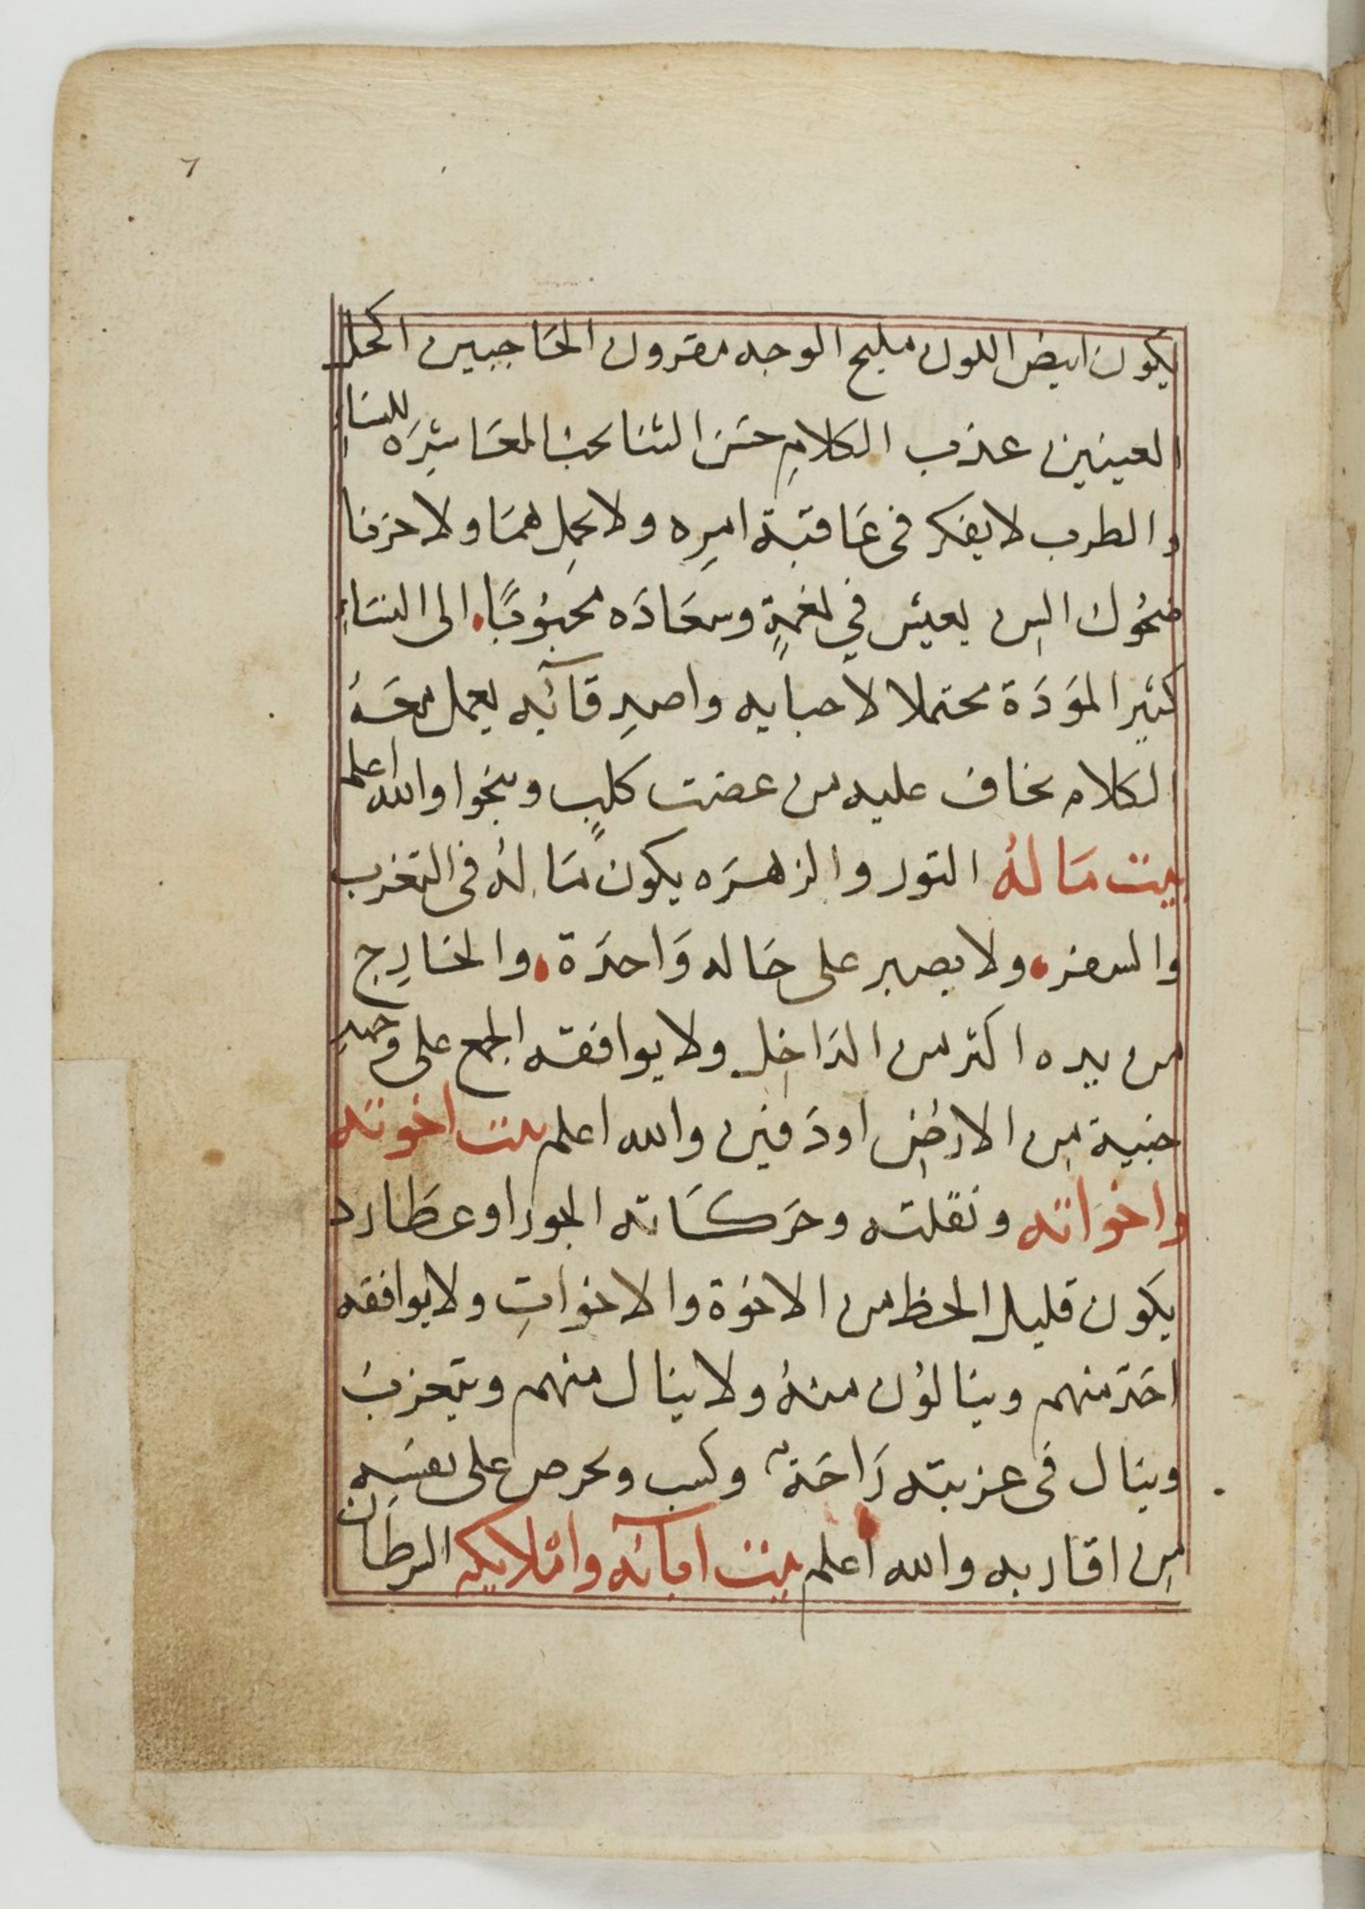 ٦
يكون ابيض اللون مليح الوجه مقرون الحَاجبين اكحل
العينين عذب الكلامِ حسَن الثنا يحب المعَاشِرَه للنسَاءِ
والطرب لا يفكر فى عَاقبَة امرِه ولا يحمِل همَا ولا حزنا
ضحُوك السن يعيش في نعمةٍ وسعَادَه محبُوبًا الى النسَاءِ
كثير الموَدَة محتملا لاحبايه واصدِقآئه يعمل معَهُ
الكلام يخاف عليه من عضت كلبٍ وينجوا والله اعلم
بيت مَالهُ الثور والزهرَه يكون مَالهُ فى التغرب
والسفر ولا يصبر على حَاله وَاحدَة والخارِج
من يده اكثر من الدَاخِل ولا يوافقه الجمع على وجهِ
خبية من الارض او دَفين والله اعلم بيت اخوته
واخوَاته ونقلته وحَركَاته الجوزا وعطَارد
يكون قليل الحظ من الاخوة والاخوَاتِ ولا يوافقه
احَد منهم وينالوُن منهُ ولا ينال منهم ويتعزب
وينال فى عزبته رَاحَة وكسب ويحرص على نفسِه
من اقاربه والله اعلم بيت ابآئه واملاكه السرطَان